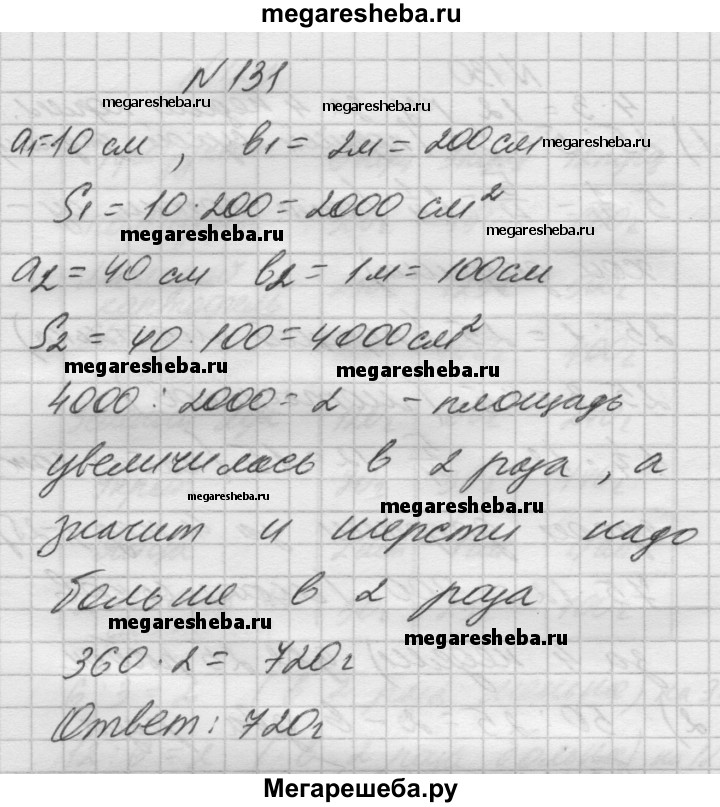 megaresheba.ru
N 131
megaresheba.ru megaresheba.ru
a1=10 см, в1 = 2м = 200 см
megaresheba.ru
S1 = 10·200 = 2000 см²
megaresheba.ru megaresheba.ru
a2 = 40 см в2 = 1м = 100 см
S2 = 40·100 = 4000 см²
megaresheba.ru megaresheba.ru
4000 : 2000 = 2 - площадь
увеличилась в 2 раза, а
megaresheba.ru megaresheba.ru
значит и шерсти надо
больше в 2 раза
megaresheba.ru megaresheba.ru
360·2 = 720г
Ответ: 720г
Мегарешеба.ру